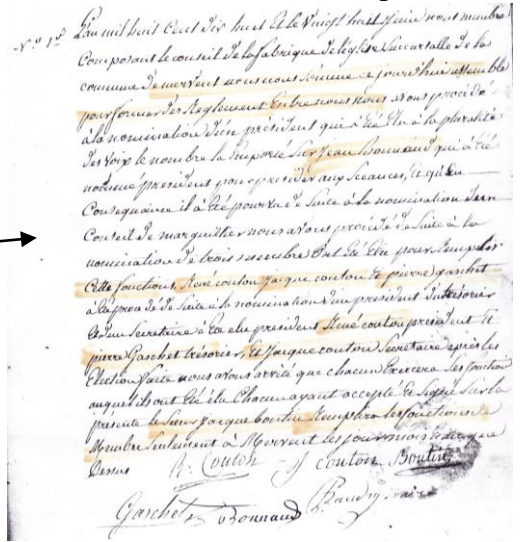 N.o 1er L'an mil huit cent dix huit et le vingt huit juin nous membre
Composant le conseil de la fabrique de l'église succursalle de la
commune de mervent nous nous somme ce jourd'hui assemble
pour former des Reglement Entre nous nous avons procédé
à la nomination d'un président qui à été Elu à la pluralité
des voix le nombre la Emporté sur Jean Bonnaud qui à été
nommé président pour presider aux sceances, et qu'en
Consequance il à été pourvu de suite à la nomination d'un
Conseil de marguillier nous avons procédé de suite à la
nomination de trois membre Ont été Elu pour Remplir
Cette fonctions, René couton Jacque couton Et pierre gaschet
à été procédé de suite à la nomination d'un president d'un trésorier
Et d'un Secretaire à été elu president René couton president Et
pierre Gaschet trésorier, Et Jacque couton Secretaire après les
Election faite nous avons arrêté que chacun Exercera ses fonction
auquel ils ont été élu Chacun ayant accepté Et signé sur la
présente le Sieur Jacque boutin Remplira les fonctions de
Membre Seulement à Mervent les jour mois Et an que
Dessus
R. Couton J couton Boutin
Gaschet Bonnaud Baudry